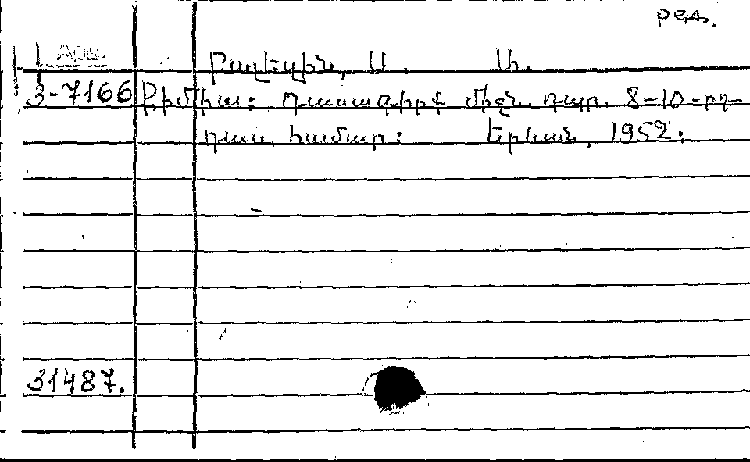 ред.
Арм.
Բադեսին, Ա. Ա.
3-7166 Քիմիա: Դասագիրք միջն. դպր. 8-10-րդ
դաս. համար: Երևան, 1952:
31487.